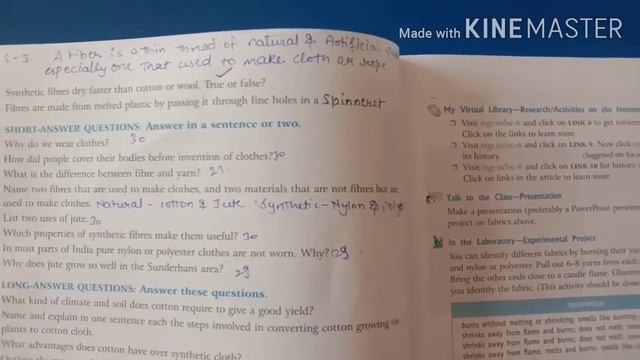 Made with KINEMASTER
S-S A fiber is a thin thread of natural & Artificial
especially one that used to make cloth or rope.
Synthetic fibres dry faster than cotton or wool. True or false?
Fibres are made from melted plastic by passing it through fine holes in a Spinneret
SHORT-ANSWER QUESTIONS: Answer in a sentence or two.
Why do we wear clothes? 30
How did people cover their bodies before invention of clothes? 30
What is the difference between fibre and yarn? 29.
Name two fibres that are used to make clothes, and two materials that are not fibres but are
used to make clothes. Natural - cotton & Jute Synthetic - Nylon &
List two uses of jute. 30
Which properties of synthetic fibres make them useful? 30
In most parts of India pure nylon or polyester clothes are not worn. Why? 29
Why does jute grow so well in the Sunderbans area? 29
LONG-ANSWER QUESTIONS: Answer these questions.
What kind of climate and soil does cotton require to give a good yield?
Name and explain in one sentence each the steps involved in converting cotton growing on
plants to cotton cloth.
What advantages does cotton have over synthetic cloth?
My Virtual Library—Research/Activities on the Internet
Visit and click on LINK 8 to get inform
Click on the links to learn more.
Visit and click on LINK 9. Now click on
its history. (Suggested site for
Visit and click on LINK 10 for history
Click on links in the article to learn more.
Talk to the Class—Presentation
Make a presentation (preferably a PowerPoint presen
project on fabrics above.
In the Laboratory—Experimental Project
You can identify different fabrics by burning their yar
and nylon or polyester. Pull out 6–8 yarns from each
Bring the other ends close to a candle flame. Observ
you identify the fabric. (This activity should be done
burns without melting or shrinking; smells like burning
shrinks away from flame and burns; does not melt;
shrinks away from flame and burns; does not melt;
shrinks away from flame; melts and burns; smells like